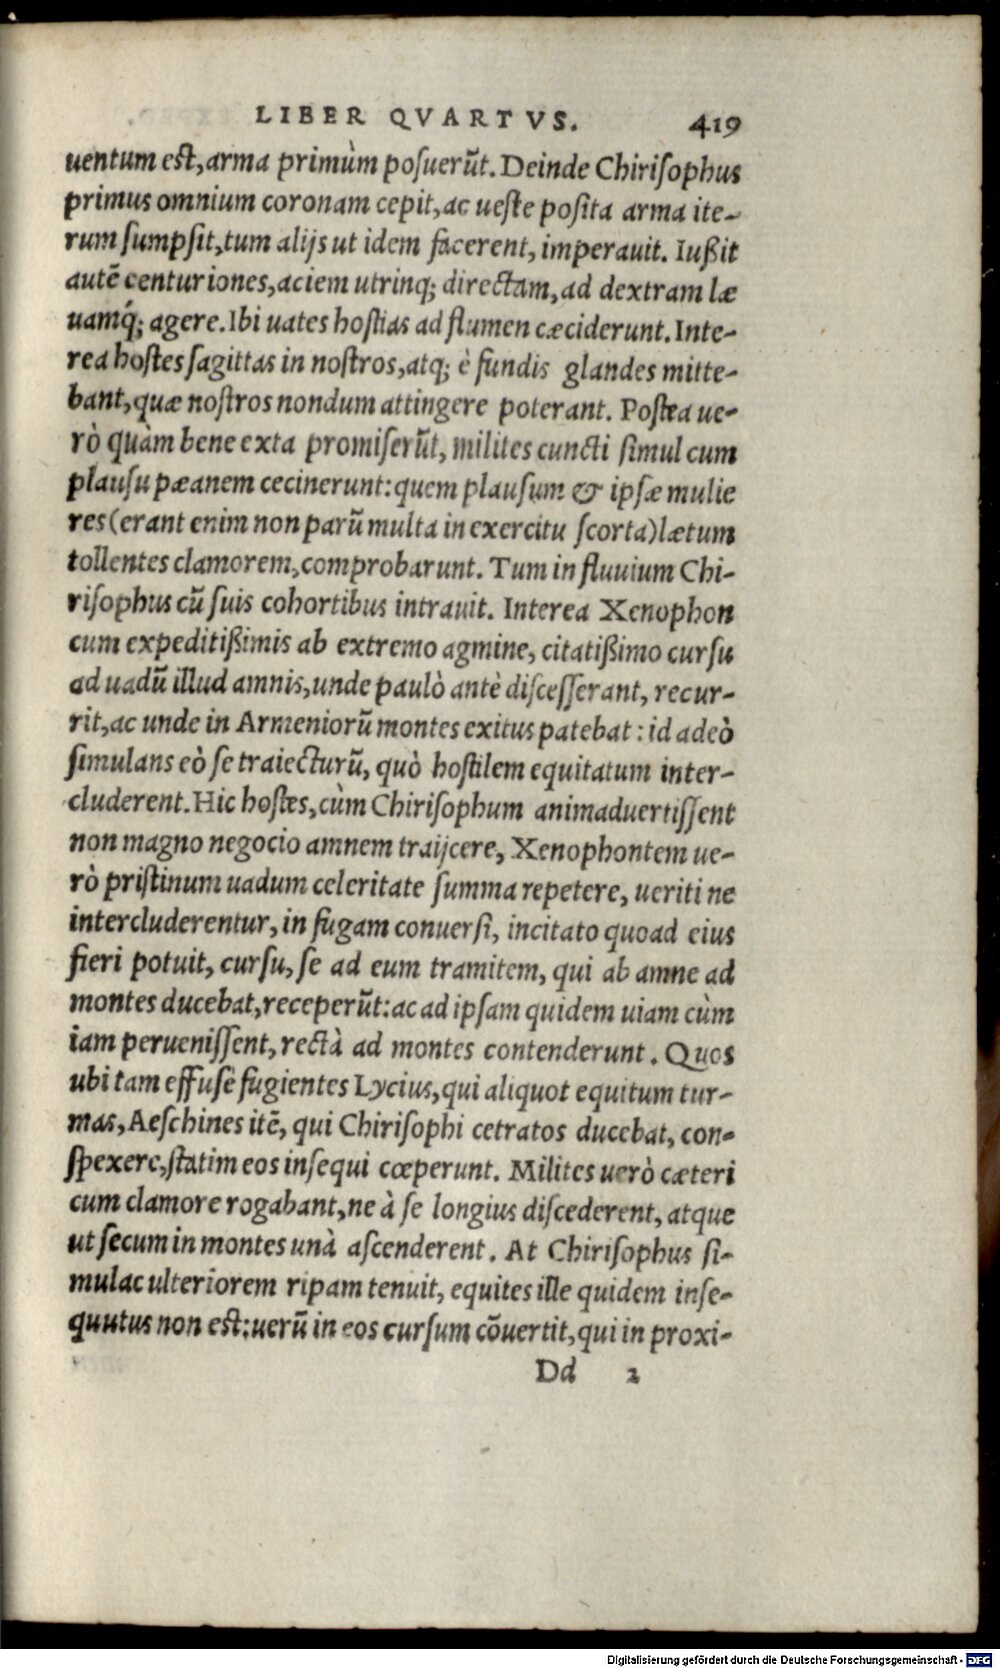 LIBER QVARTVS. 419
uentum est, arma primùm posuerũt. Deinde Chirisophus
primus omnium coronam cepit, ac ueste posita arma ite-
rum sumpsit, tum alijs ut idem facerent, imperauit. Iußit
autẽ centuriones, aciem utrinq; directam, ad dextram læ
uamq́; agere. Ibi uates hostias ad flumen cæciderunt. Inte-
rea hostes sagittas in nostros, atq; è fundis glandes mitte-
bant, quæ nostros nondum attingere poterant. Postea ue-
rò quàm bene exta promiserũt, milites cuncti simul cum
plausu pæanem cecinerunt: quem plausum & ipsæ mulie
res (erant enim non parũ multa in exercitu scorta) lætum
tollentes clamorem, comprobarunt. Tum in fluuium Chi-
risophus cũ suis cohortibus intrauit. Interea Xenophon
cum expeditißimis ab extremo agmine, citatißimo cursu
ad uadũ illud amnis, unde paulò antè discesserant, recur-
rit, ac unde in Armeniorũ montes exitus patebat: id adeò
simulans eò se traiecturũ, quò hostilem equitatum inter-
cluderent. Hic hostes, cùm Chirisophum animaduertissent
non magno negocio amnem traijcere, Xenophontem ue-
rò pristinum uadum celeritate summa repetere, ueriti ne
intercluderentur, in fugam conuersi, incitato quoad eius
fieri potuit, cursu, se ad eum tramitem, qui ab amne ad
montes ducebat, receperũt: ac ad ipsam quidem uiam cùm
iam peruenissent, rectà ad montes contenderunt. Quos
ubi tam effusè fugientes Lycius, qui aliquot equitum tur-
mas, Aeschines itẽ, qui Chirisophi cetratos ducebat, con-
spexere, statim eos insequi cœperunt. Milites uerò cæteri
cum clamore rogabant, ne à se longius discederent, atque
ut secum in montes unà ascenderent. At Chirisophus si-
mulac ulteriorem ripam tenuit, equites ille quidem inse-
quutus non est: uerũ in eos cursum cõuertit, qui in proxi-
Dd 2
Digitalisierung gefördert durch die Deutsche Forschungsgemeinschaft - DFG